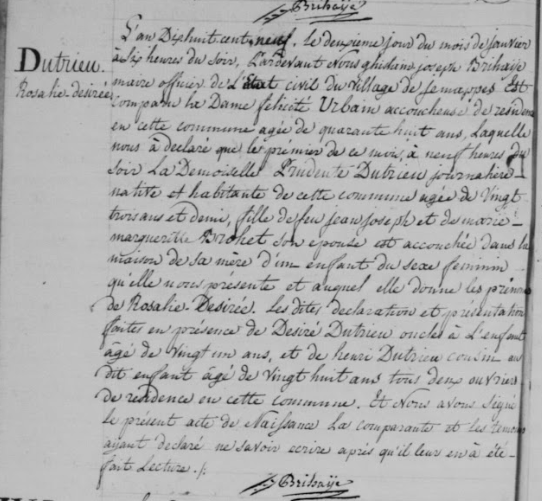 Brihaÿe
L'an Dixhuit cent neuf. le deuxième jour du mois de janvier
Dutrieu.
Rosalie-desirée
à six heures du soir, Pardevant Nous ghislain joseph Brihaÿe
maire officier de L'état civil du village de jemappes Est
comparu la Dame félicité Urbain accoucheuse de residence
en cette commune agée de quarante huit ans, Laquelle
nous à declaré que le prémier de ce mois, à neuf heures du
soir La Demoiselle Prudente Dutrieu journalière
native et habitante de cette commune agée de Vingt
trois ans et demi, fille de feu jean joseph et de marie
marguerille Brohet son épouse est accouchée dans la
maison de sa mère d'un enfant du sexe feminin
qu'elle nous présente et auquel elle donne les prénoms
de Rosalie-Desirée. Les dites declaration et présentation
faites en présence de Desiré Dutrieu oncles à L'enfant
âgé de Vingt un ans, et de henri Dutrieu cousin au
dit enfant âgé de Vingt huit ans tous deux ouvriers
de residence en cette commune. Et Nous avons Signé
le présent acte de Naissance La comparante et les temoins
ayant declaré ne savoir ecrire après qu'il leur en à été
fait Lecture./.
Brihaÿe